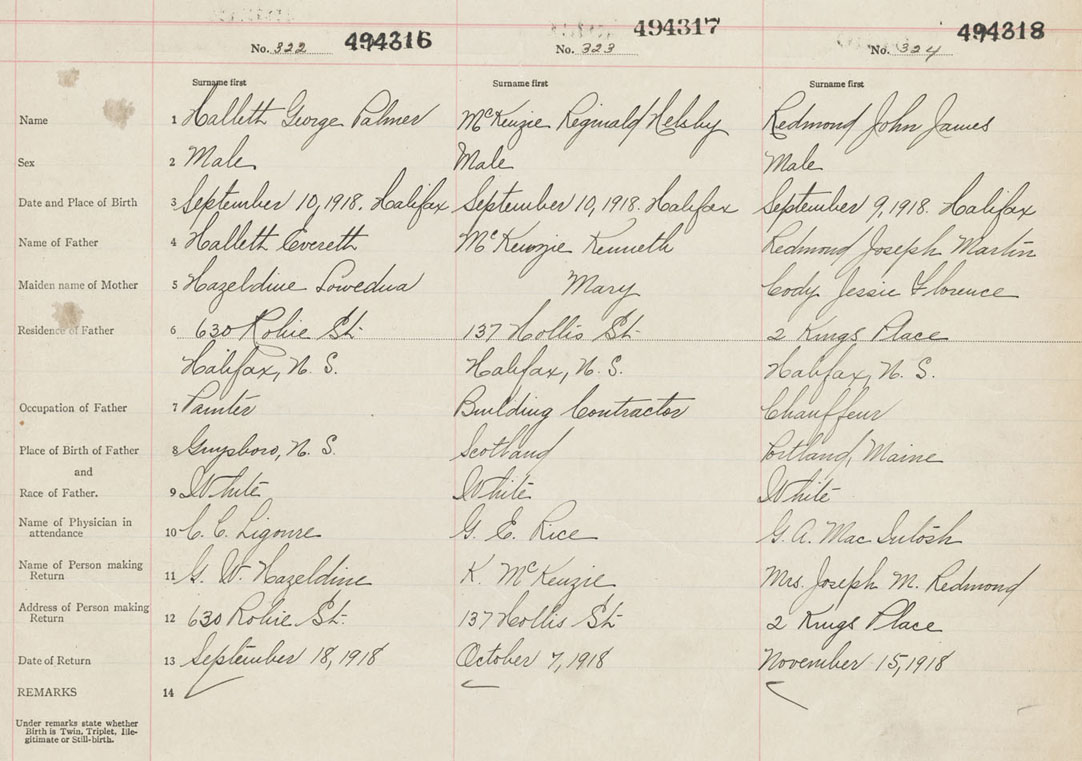 No. 322 494316 No. 323 494317 No. 324 494318
Surname first Surname first Surname first
Name 1 Hallett George Palmer McKenzie Reginald Helsby Redmond John James
Sex 2 Male Male Male
Date and Place of Birth 3 September 10, 1918. Halifax September 10, 1918. Halifax September 9, 1918. Halifax
Name of Father 4 Hallett Everett McKenzie Kenneth Redmond Joseph Martin
Maiden name of Mother 5 Hazeldine Mary Cody Jessie Florence
Residence of Father 6 630 Robie St. 137 Hollis St. 2 Kings Place
Halifax, N. S. Halifax, N. S. Halifax, N. S.
Occupation of Father 7 Painter Building Contractor Chauffeur
Place of Birth of Father 8 Guysboro, N. S. Scotland Portland, Maine
and
Race of Father. 9 White White White
Name of Physician in
attendance 10 C. C. Ligoure G. E. Rice G. A. Mac Intosh
Name of Person making
Return 11 G. W. Hazeldine K. McKenzie Mrs. Joseph M. Redmond
Address of Person making
Return 12 630 Robie St. 137 Hollis St. 2 Kings Place
Date of Return 13 September 18, 1918 October 7, 1918 November 15, 1918
REMARKS 14
Under remarks state whether
Birth is Twin, Triplet, Ille-
gitimate or Still-birth.